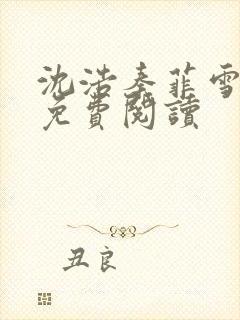 沈浩秦菲雪
免費閱讀
丑良